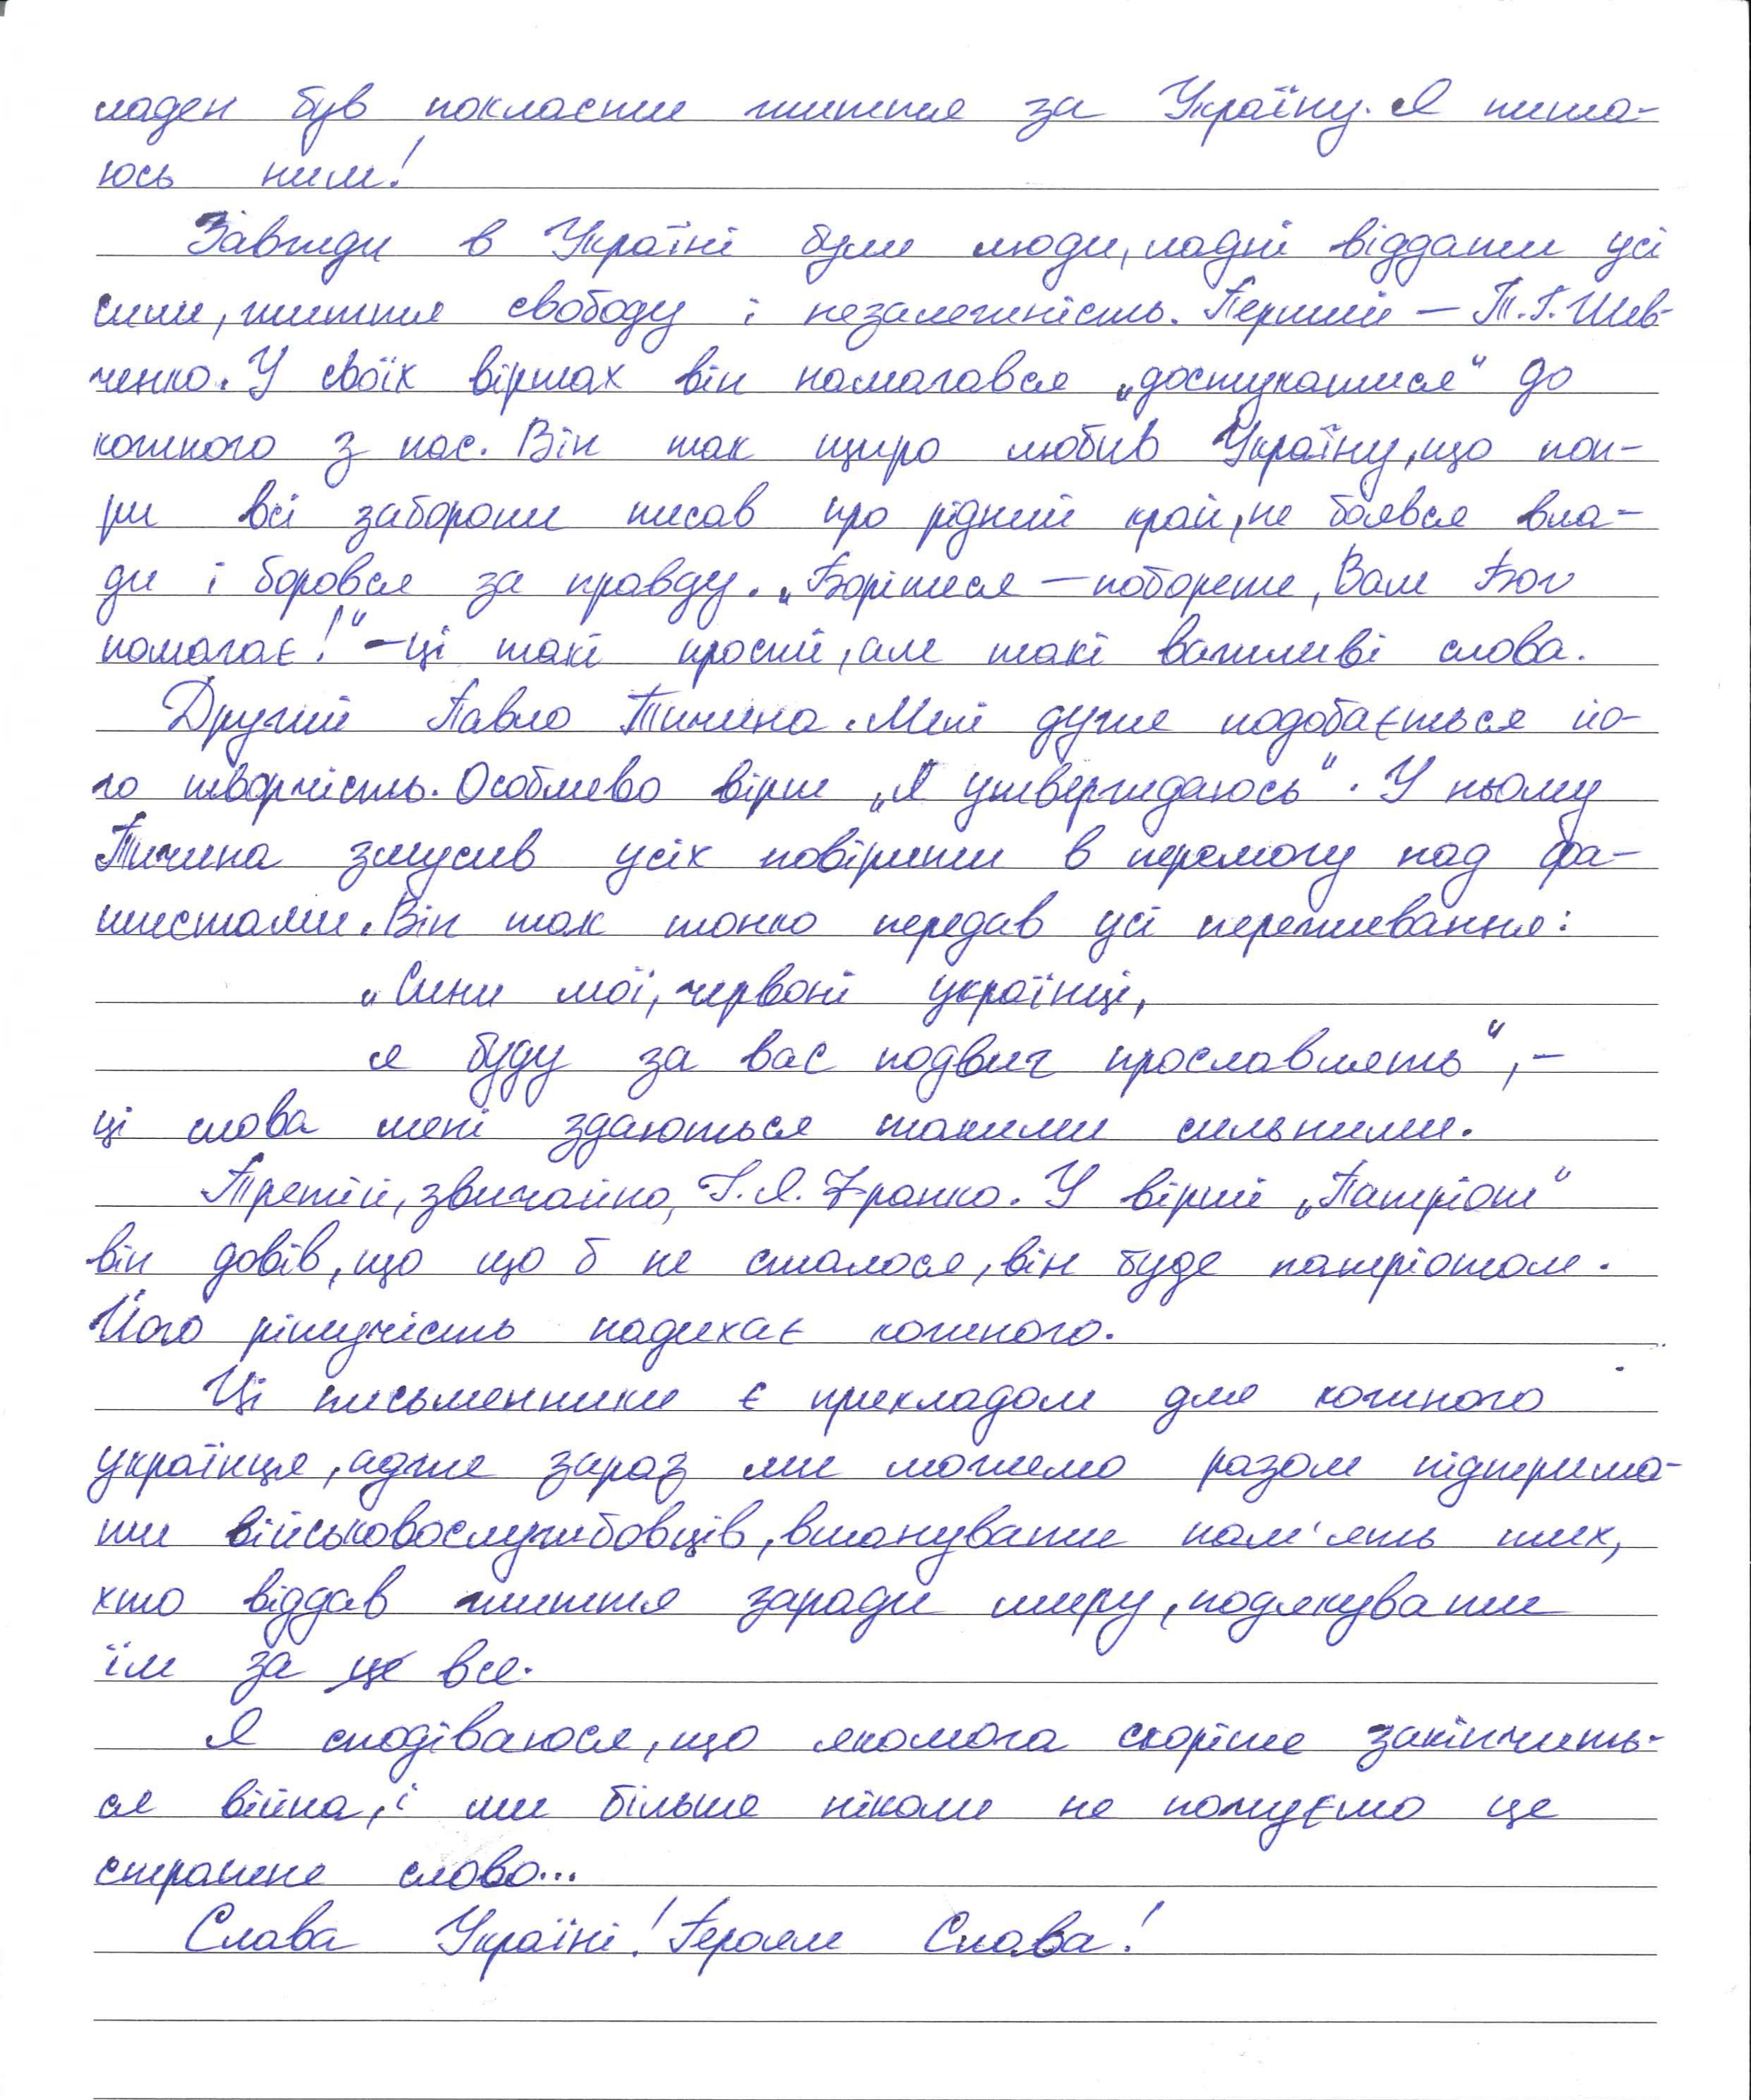 ладен був покласти життя за Україну. Я пиша-
юсь ним!
Завжди в Україні були люди, ладні віддати усі
сили, життя свободу і незалежність. Перший – Т.Г. Шев-
ченко. У своїх віршах він намагався „достукатися“ до
кожного з нас. Він так щиро любив Україну, що поп-
ри всі заборони писав про рідний край, не боявся вла-
ди і боровся за правду. „Борітеся – поборете, Вам Бог
помагає!“ – ці такі прості, але такі важливі слова.
Другий Павло Тичина. Мені дуже подобається йо-
го творчість. Особливо вірш „Я утверждаюсь“. У ньому
Тичина змусив усіх повірити в перемогу над фа-
шистами. Він так тонко передав усі переживання:
„Сини мої, червоні українці,
я буду за вас подвиг прославлять“, –
ці слова мені здаються такими сильними.
Третій, звичайно, І.Я. Франко. У вірші „Патріот“
він довів, що що б не сталося, він буде патріотом.
Його рішучість надихає кожного.
Ці письменники є прикладом для кожного
українця, адже зараз ми можемо разом підтрима-
ти військовослужбовців, вшанувати пам'ять тих,
хто віддав життя заради миру, подякувати
їм за це все.
Я сподіваюся, що якомога скоріше закінчить-
ся війна, і ми більше ніколи не почуємо це
страшне слово...
Слава Україні! Героям Слава!